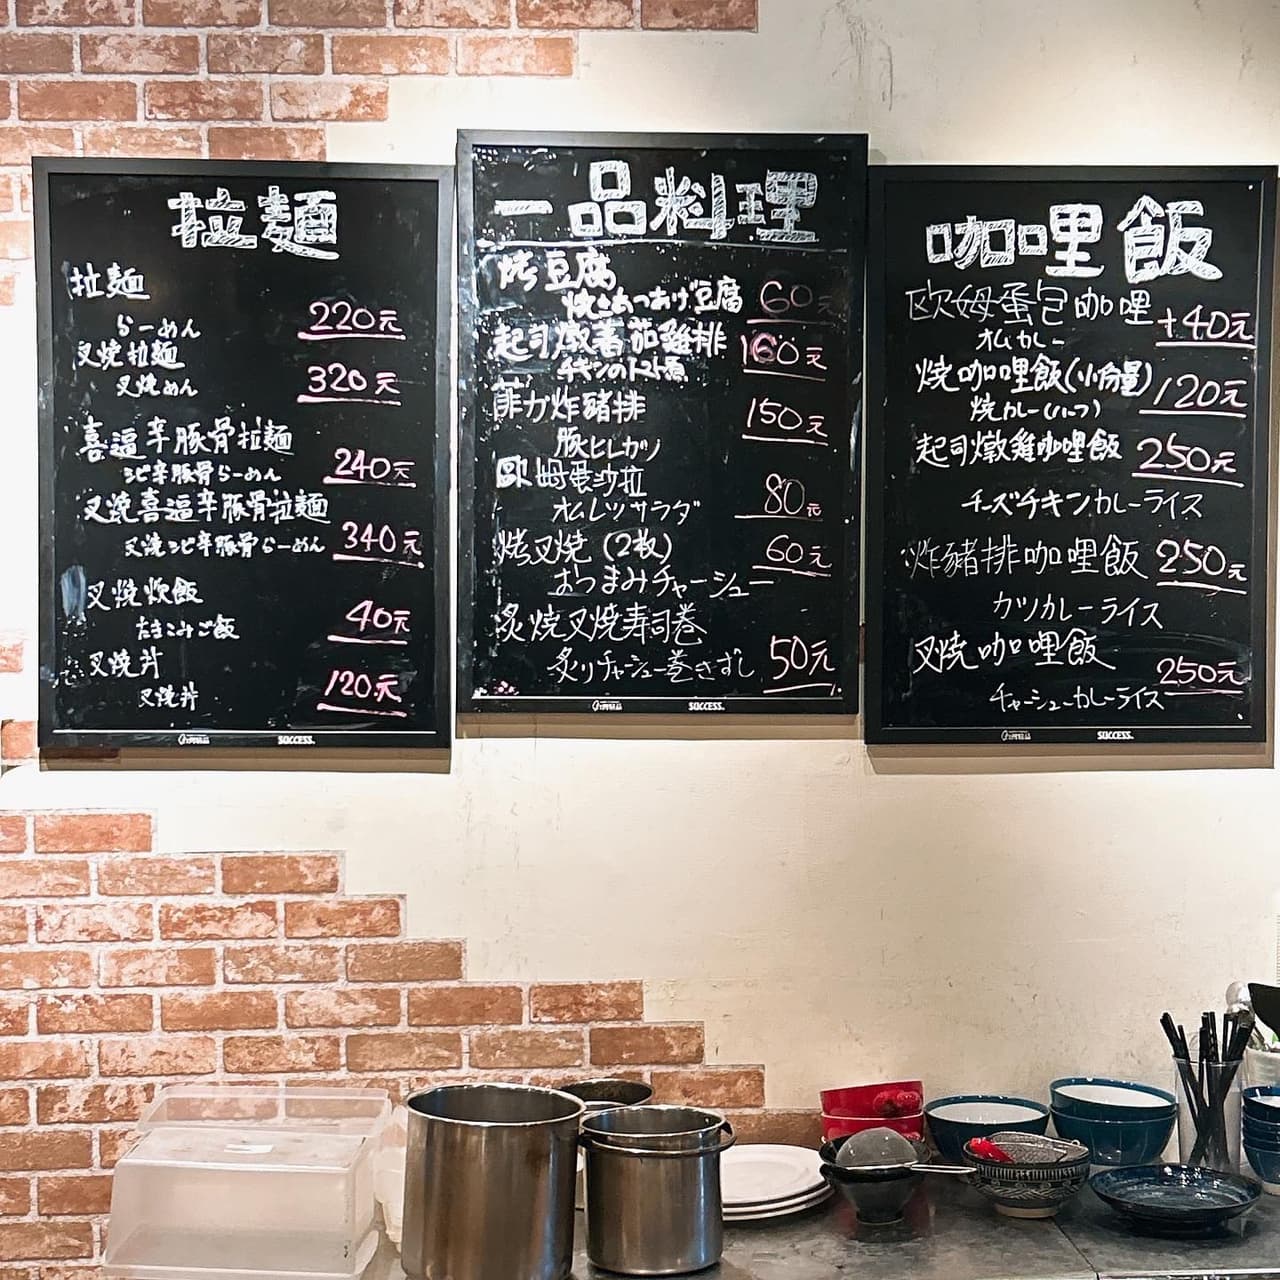 拉麵
拉麵
らーめん 220元
叉焼拉麵
叉焼めん 320元
喜逼辛豚骨拉麵
シビ辛豚骨らーめん 240元
叉焼喜逼辛豚骨拉麵
叉焼シビ辛豚骨らーめん 340元
叉焼炊飯
たきこみご飯 40元
叉焼丼
叉焼丼 120元
SUCCESS.
一品料理
烤豆腐
焼きあつあげ豆腐 60元
起司燉蕃茄雞排 160元
チキンのトマト煮
菲力炸豬排 150元
豚ヒレカツ
歐姆蛋沙拉 80元
オムレツサラダ
烤叉焼(2枚) 60元
おつまみチャーシュー
炙焼叉焼寿司巻
炙りチャーシュー巻きずし 50元
SUCCESS.
咖哩飯
欧姆蛋包咖哩 +40元
オムカレー
焼咖哩飯(小份量) 120元
焼カレー(ハーフ)
起司燉雞咖哩飯 250元
チーズチキンカレーライス
炸豬排咖哩飯 250元
カツカレーライス
叉焼咖哩飯 250元
チャーシューカレーライス
SUCCESS.